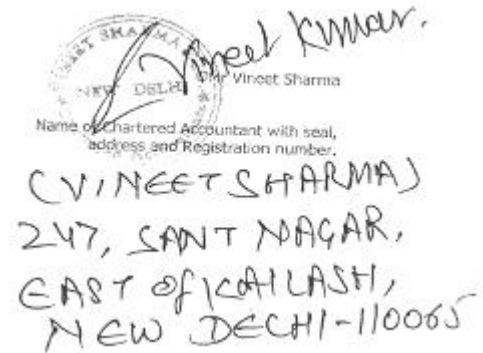 Vineet Kumar.
VINEET SHARMA
NEW DELHI
Mr Vineet Sharma
Name of Chartered Accountant with seal,
address and Registration number.
(VINEET SHARMA)
247, SANT NAGAR,
EAST Of KAILASH,
NEW DELHI-110065